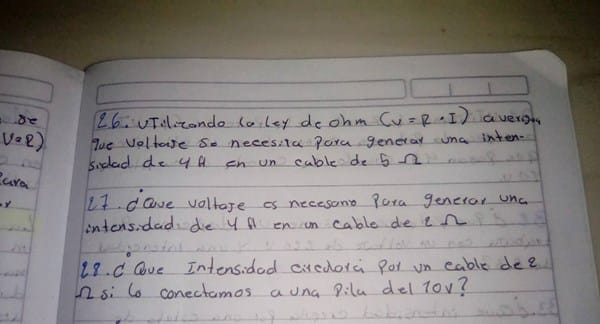 se
V=R)
26. UTilizando la ley de ohm (V=R·I) averigua
que voltaje se necesita para generar una inten-
sidad de 4 A en un cable de 5 Ω
27. ¿Que voltaje es necesario para generar una
intensidad de 4 A en un cable de 2 Ω
28. ¿Que Intensidad circulora por un cable de 2
Ω si lo conectamos a una Pila del 10v?